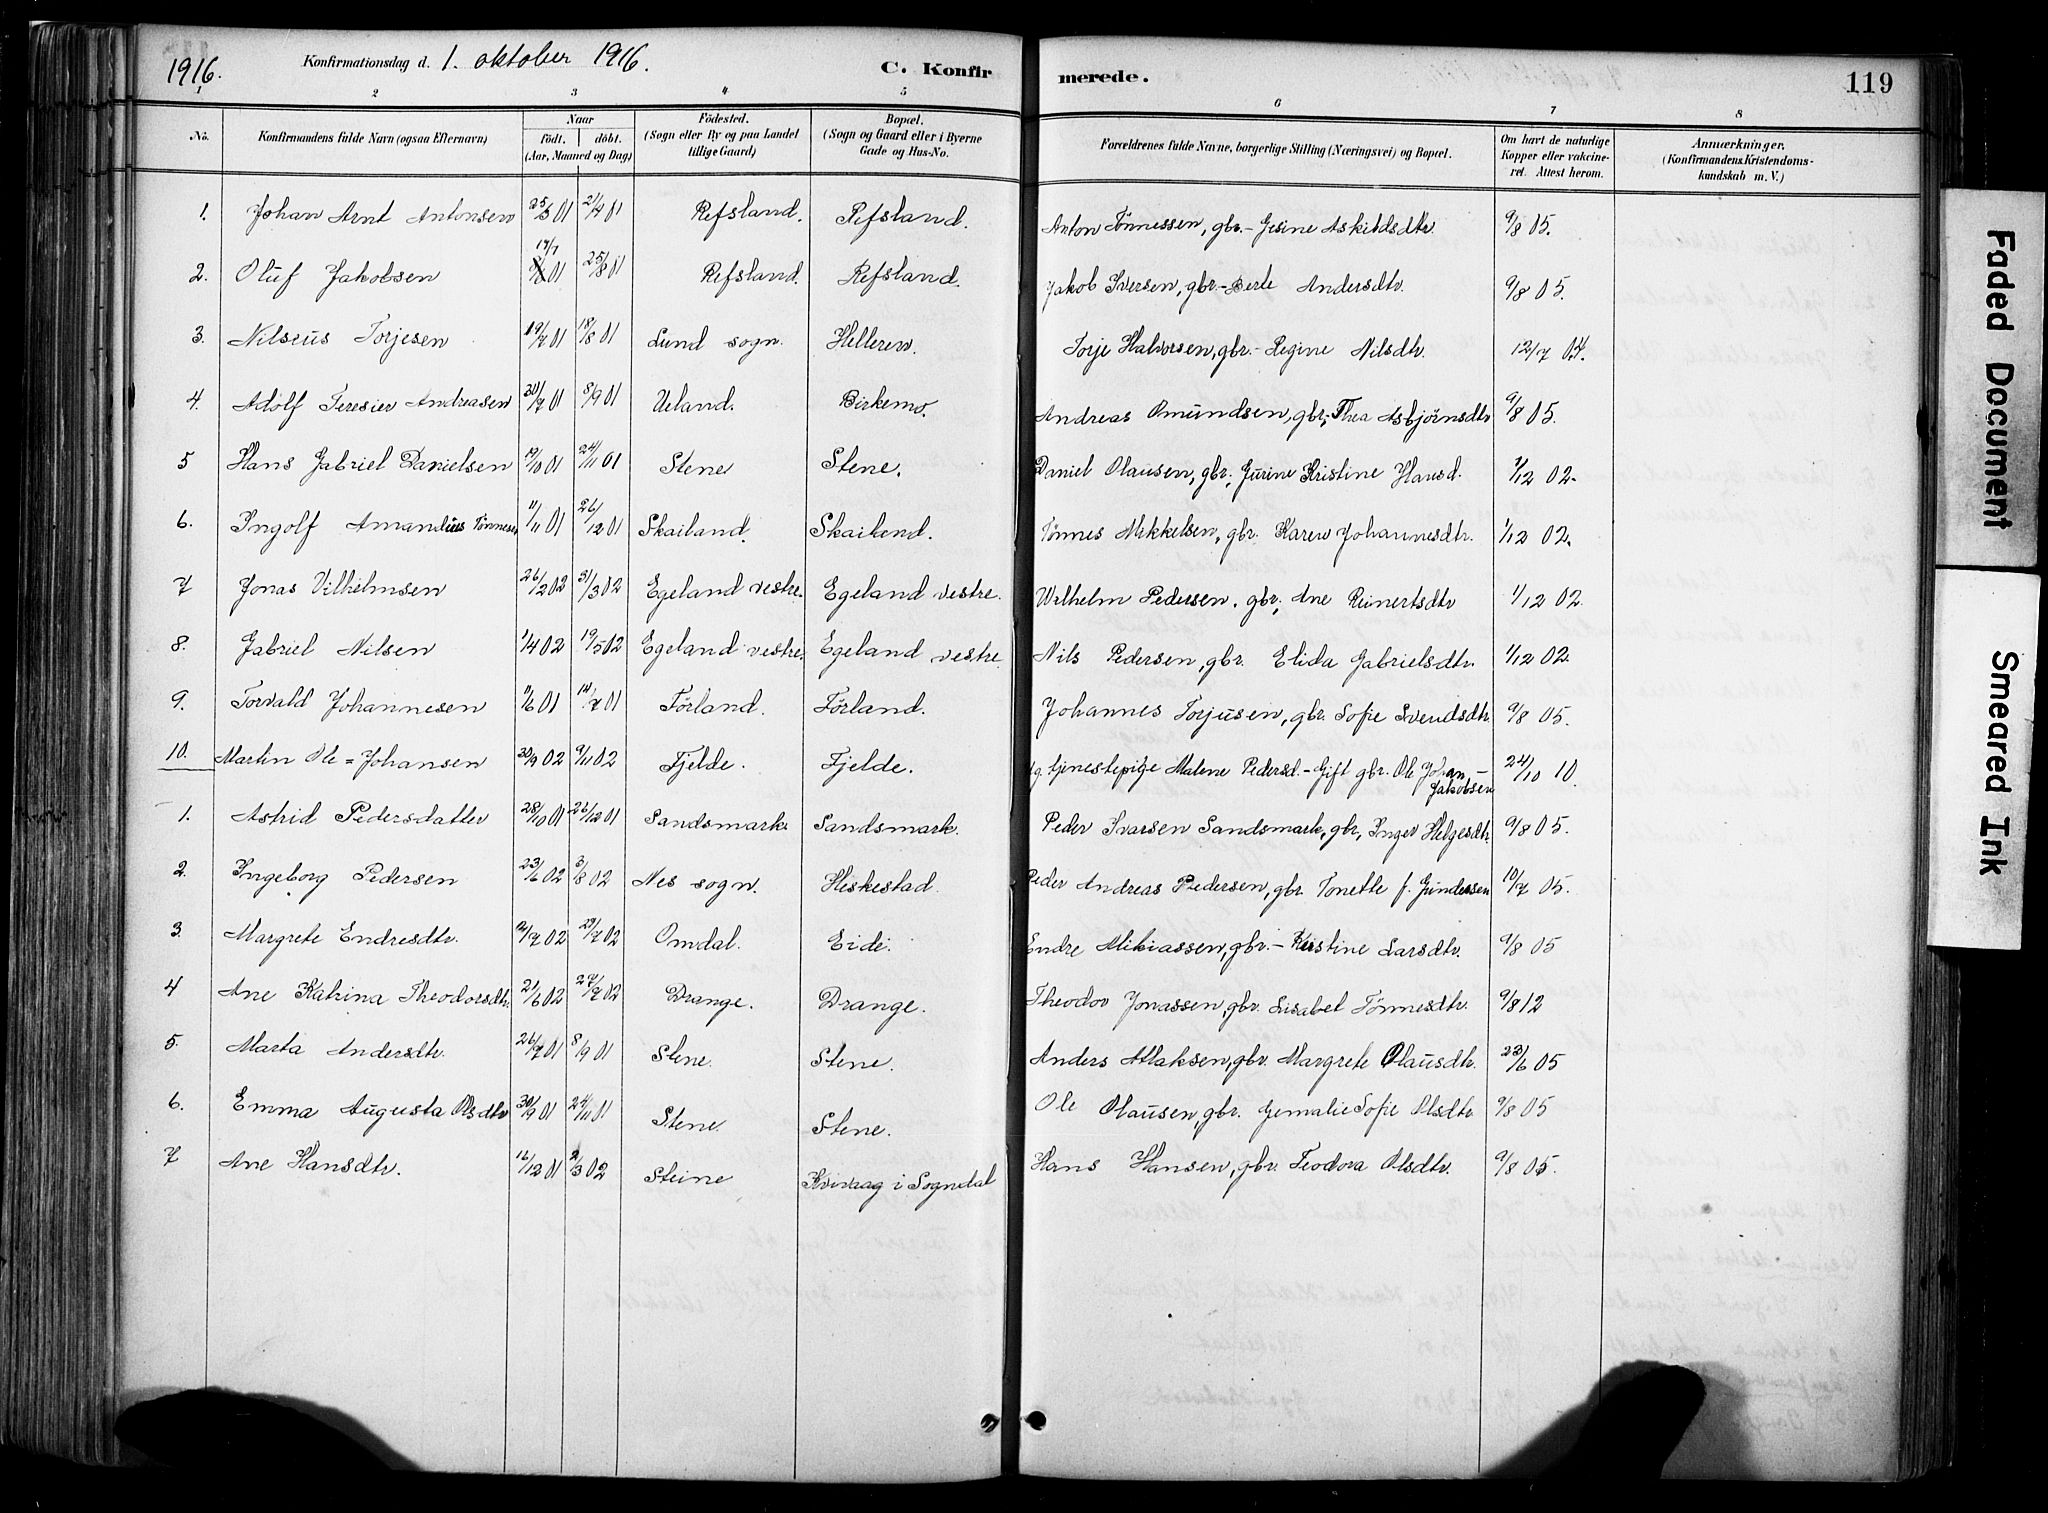 1916. Konfirmationsdag d. 1. oktober 1916. C. Konfirmerede. 119
1 2 3 4 5 6 7 8
No. Konfirmandens fulde Navn (ogsaa Efternavn) Naar født. døbt. (Aar, Maaned og Dag) Fødested. (Sogn eller By og paa Landet tillige Gaard) Bopæl. (Sogn og Gaard eller i Byerne Gade og Hus-No. Forældrenes fulde Navne, borgerlige Stilling (Næringsvei) og Bopæl. Om havt de naturlige Kopper eller vakcineret. Attest herom. Anmærkninger. (Konfirmandens Kristendomskundskab m. V.)
1. Johan Arnt Antonsen 25/3 01 21/4 01 Refsland. Refsland. Anton Tønnessen, gbr. - Gesine Askildsdtr. 9/8 05.
2. Oluf Jakobsen 14/7 01 25/8 01 Refsland. Refsland. Jakob Iversen, gbr. - Berte Andersdtr. 9/8 05.
3. Nilseus Torjesen 19/7 01 18/8 01 Lund sogn. Helleren. Torje Halvorsen, gbr. - Regine Nilsdtr. 12/7 04.
4. Adolf Teresier Andreasen 30/7 01 8/9 01 Ueland. Birkemo. Andreas Omundsen, gbr., Thea Asbjørnsdtr 9/8 05.
5 Hans Gabriel Danielsen 19/10 01 24/11 01 Stene Stene. Daniel Olausen, gbr., Jurine Kristine Hansd. 1/12 02.
6. Ingolf Amandius Tønnesen 11/11 01 26/12 01 Skailand. Skailand. Tønnes Mikkelsen, gbr. Karen Johannesdtr. 1/12 02.
7 Jonas Vilhelmsen 26/2 02 31/3 02 Egeland vestre. Egeland vestre. Wilhelm Pedersen. gbr., Ane Reinertsdtr 1/12 02.
8. Gabriel Nilsen 1/4 02 19/5 02 Egeland vestre. Egeland vestre. Nils Pedersen, gbr. Elida Gabrielsdtr. 1/12 02.
9. Torvald Johannesen 11/6 01 14/7 01 Førland. Førland. Johannes Torjusen, gbr. Sofie Svendsdtr 9/8 05.
10. Martin Ole = Johansen 30/9 02 9/11 02 Fjelde. Fjelde. Ug. tjenestepige Malene Pedersd. - Gift gbr. Ole Johan Jakobsen 24/10 10.
1. Astrid Pedersdatter 28/10 01 26/12 01 Sandsmark Sandsmark. Peder Ivarsen Sandsmark, gbr, Inger Helgesdtr. 9/8 05.
2. Ingeborg Pedersen 23/6 02 3/8 02 Nes sogn. Heskestad. Peder Andreas Pedersen, gbr. Tonette f. Gundersen 10/7 05.
3. Margrete Endresdtr. 14/7 02 29/7 02 Omdal. Eide. Endre Mikiassen, gbr. - Kristine Larsdtr. 9/8 05
4 Ane Katrina Theodorsdtr. 21/6 02 27/7 02 Drange. Drange. Theodor Jonassen, gbr. Lisabet Tønnesdtr. 9/8 12
5. Marta Andersdtr. 26/7 01 8/9 01 Stene. Stene. Anders Atlaksen, gbr. Margrete Olausdtr. 23/6 05
6. Emma Augusta Olsdtr 30/9 01 24/11 01 Stene Stene. Ole Olausen, gbr. Gemalie Sofie Olsdtr 9/8 05
7 Ane Hansdtr. 16/12 01 2/3 02 Steine Kvivaag i Sogndal Hans Hansen, gbr. Teodora Olsdtr. 9/8 05.
Faded Document
Smeared Ink